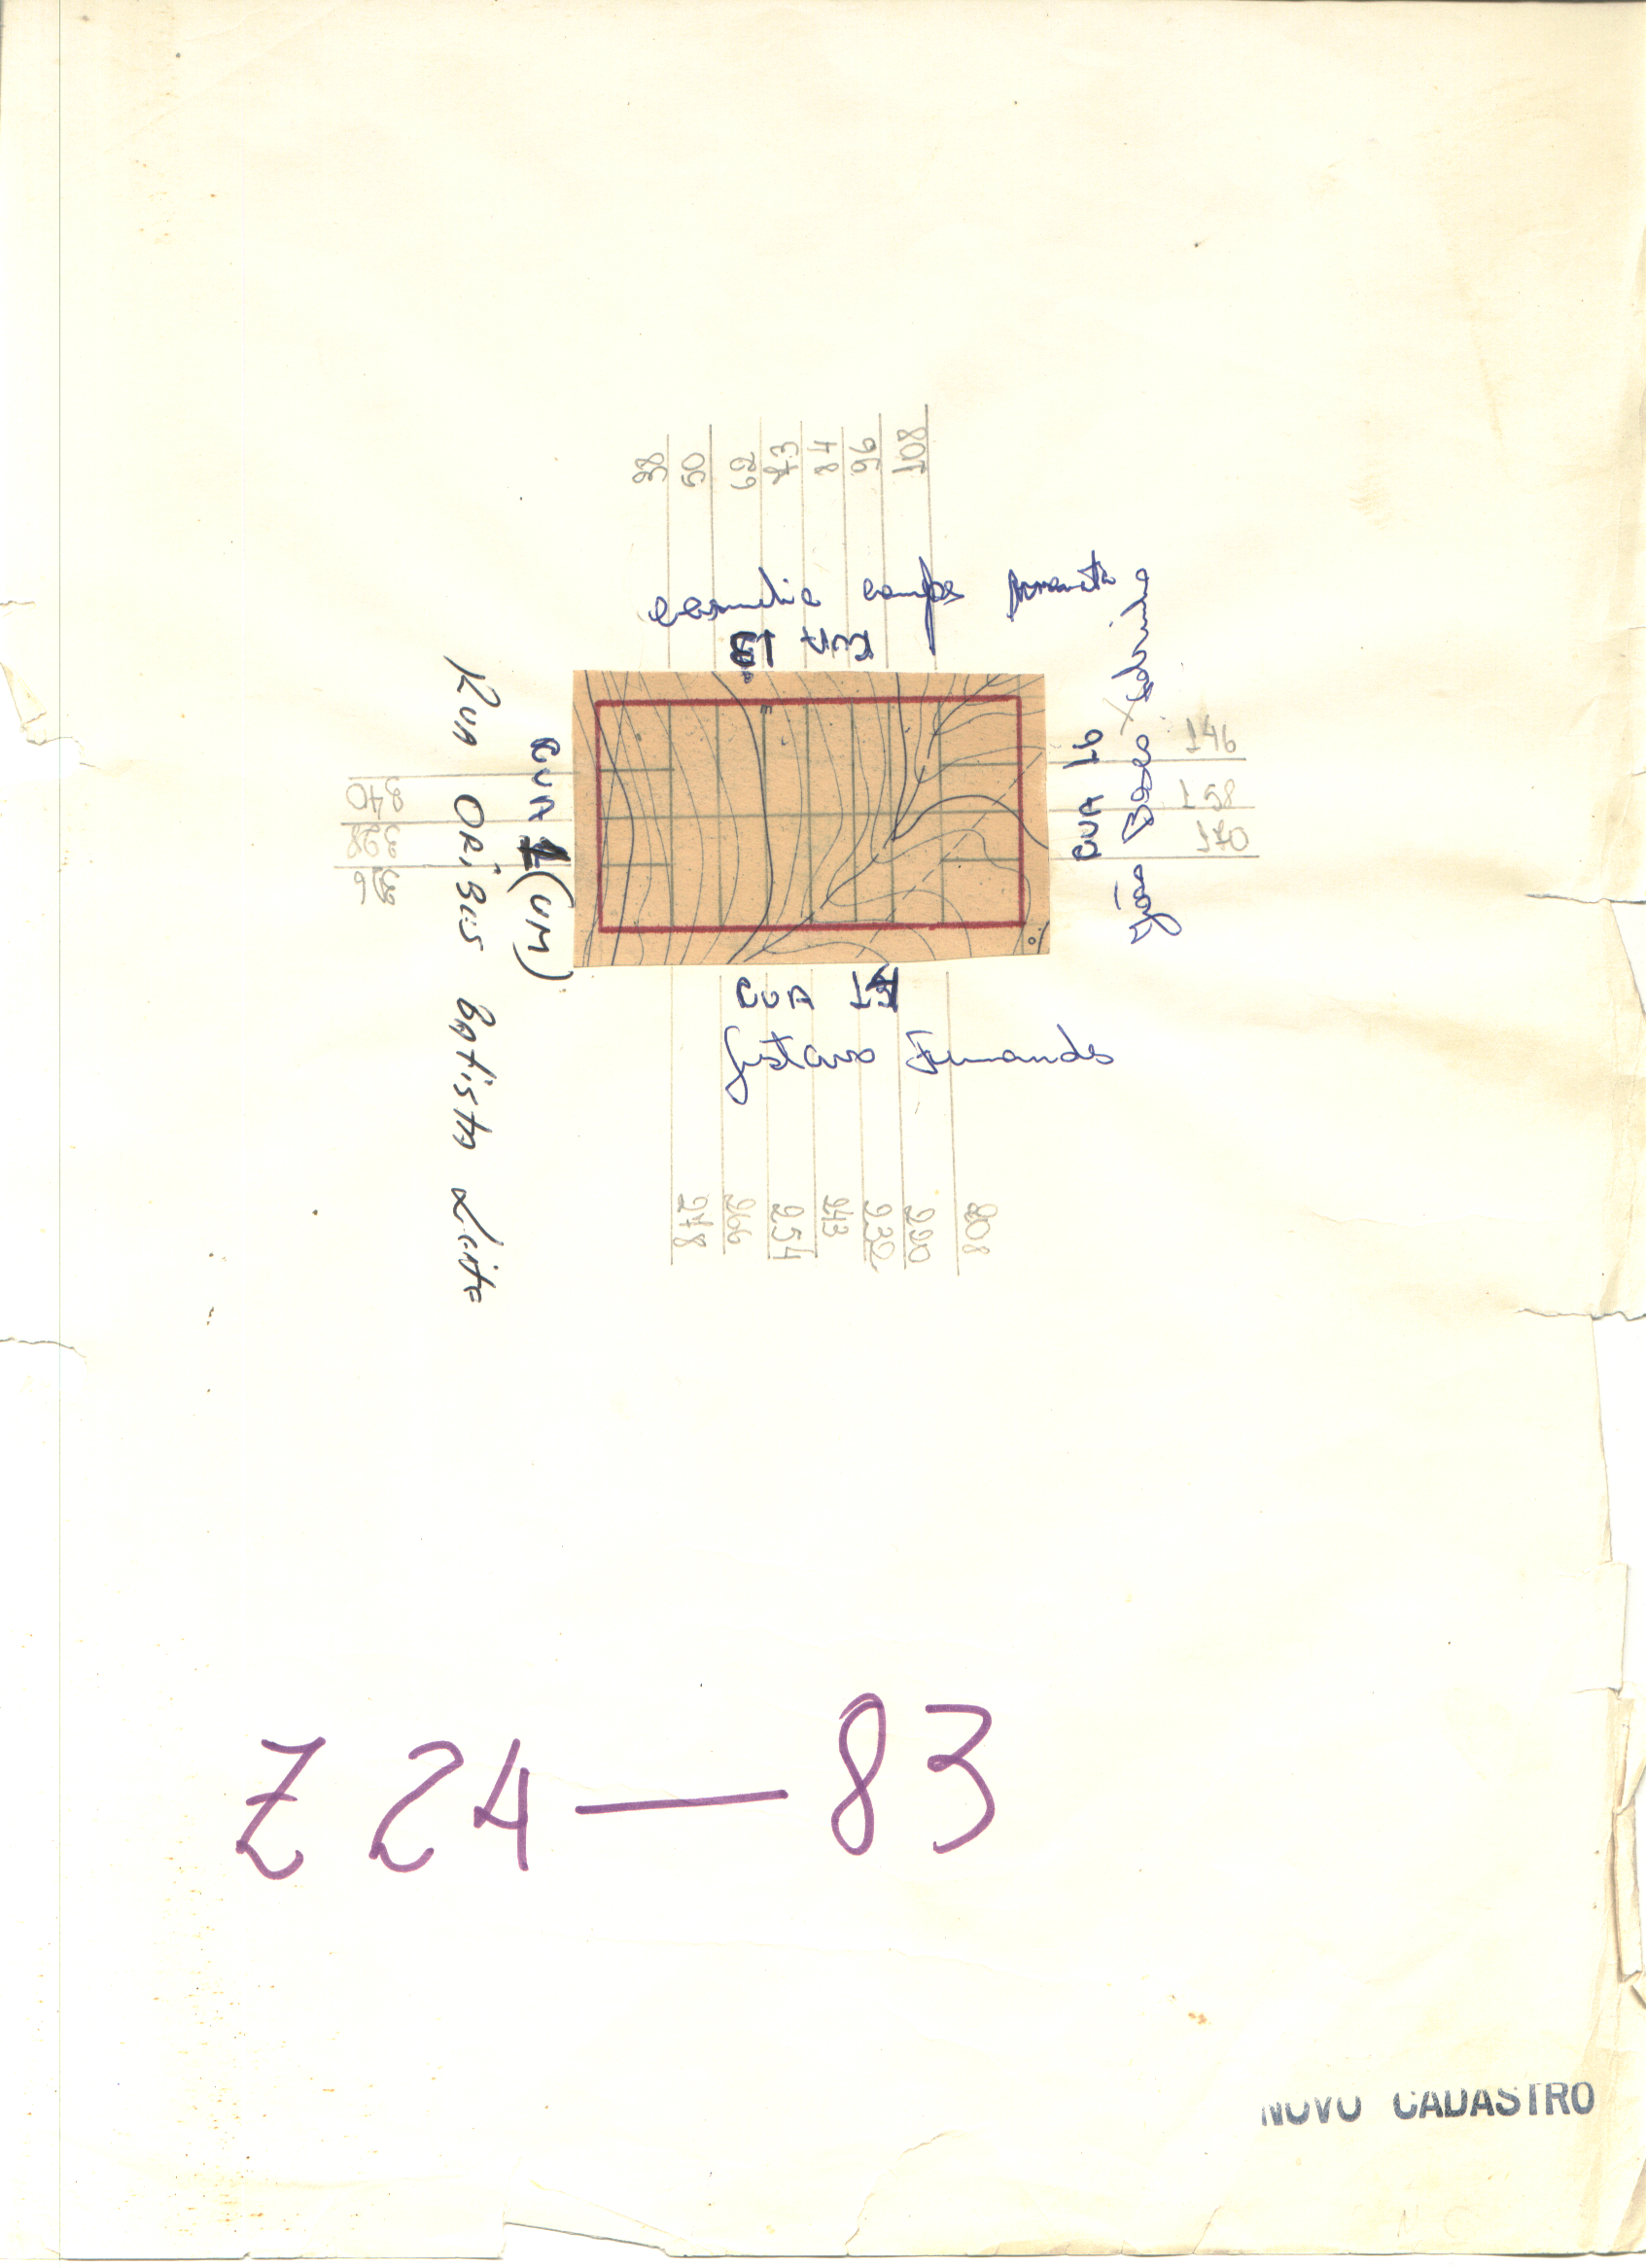 38
50
62
73
84
96
108
RUA 13
RUA 1 (UM)
RUA ORiBus BAtistA Leite
340
328
316
RUA 16
João Bosco Sobrinho
146
158
170
RUA 17
Gustavo Fernandes
278
266
254
243
232
220
208
Z 24 — 83
NOVO CADASTRO